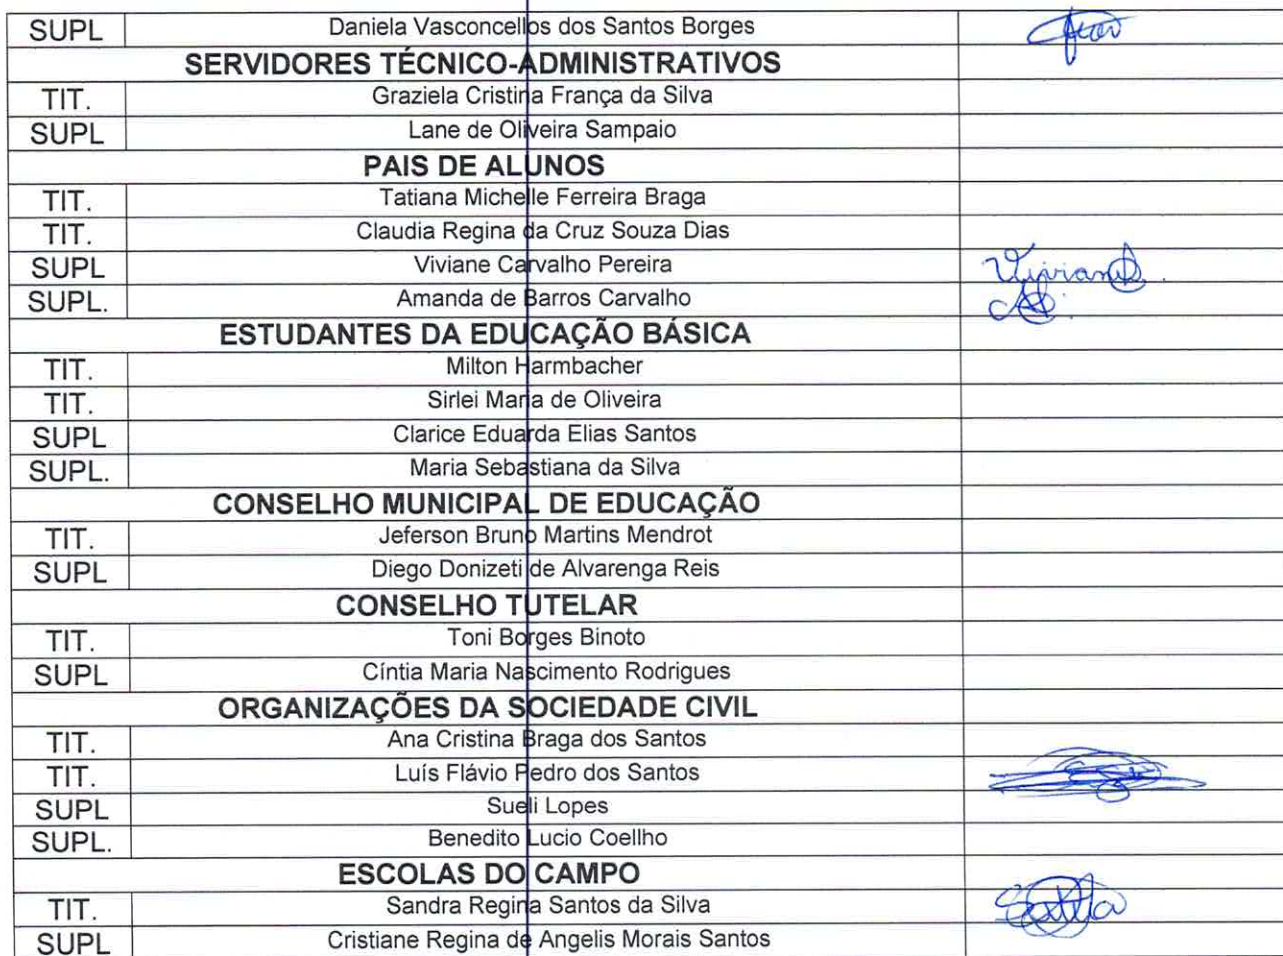 SUPL Daniela Vasconcellos dos Santos Borges
SERVIDORES TÉCNICO-ADMINISTRATIVOS
TIT. Graziela Cristina França da Silva
SUPL Lane de Oliveira Sampaio
PAIS DE ALUNOS
TIT. Tatiana Michelle Ferreira Braga
TIT. Claudia Regina da Cruz Souza Dias
SUPL Viviane Carvalho Pereira
SUPL. Amanda de Barros Carvalho
ESTUDANTES DA EDUCAÇÃO BÁSICA
TIT. Milton Harmbacher
TIT. Sirlei Maria de Oliveira
SUPL Clarice Eduarda Elias Santos
SUPL. Maria Sebastiana da Silva
CONSELHO MUNICIPAL DE EDUCAÇÃO
TIT. Jeferson Bruno Martins Mendrot
SUPL Diego Donizeti de Alvarenga Reis
CONSELHO TUTELAR
TIT. Toni Borges Binoto
SUPL Cíntia Maria Nascimento Rodrigues
ORGANIZAÇÕES DA SOCIEDADE CIVIL
TIT. Ana Cristina Braga dos Santos
TIT. Luís Flávio Pedro dos Santos
SUPL Sueli Lopes
SUPL. Benedito Lucio Coellho
ESCOLAS DO CAMPO
TIT. Sandra Regina Santos da Silva
SUPL Cristiane Regina de Angelis Morais Santos